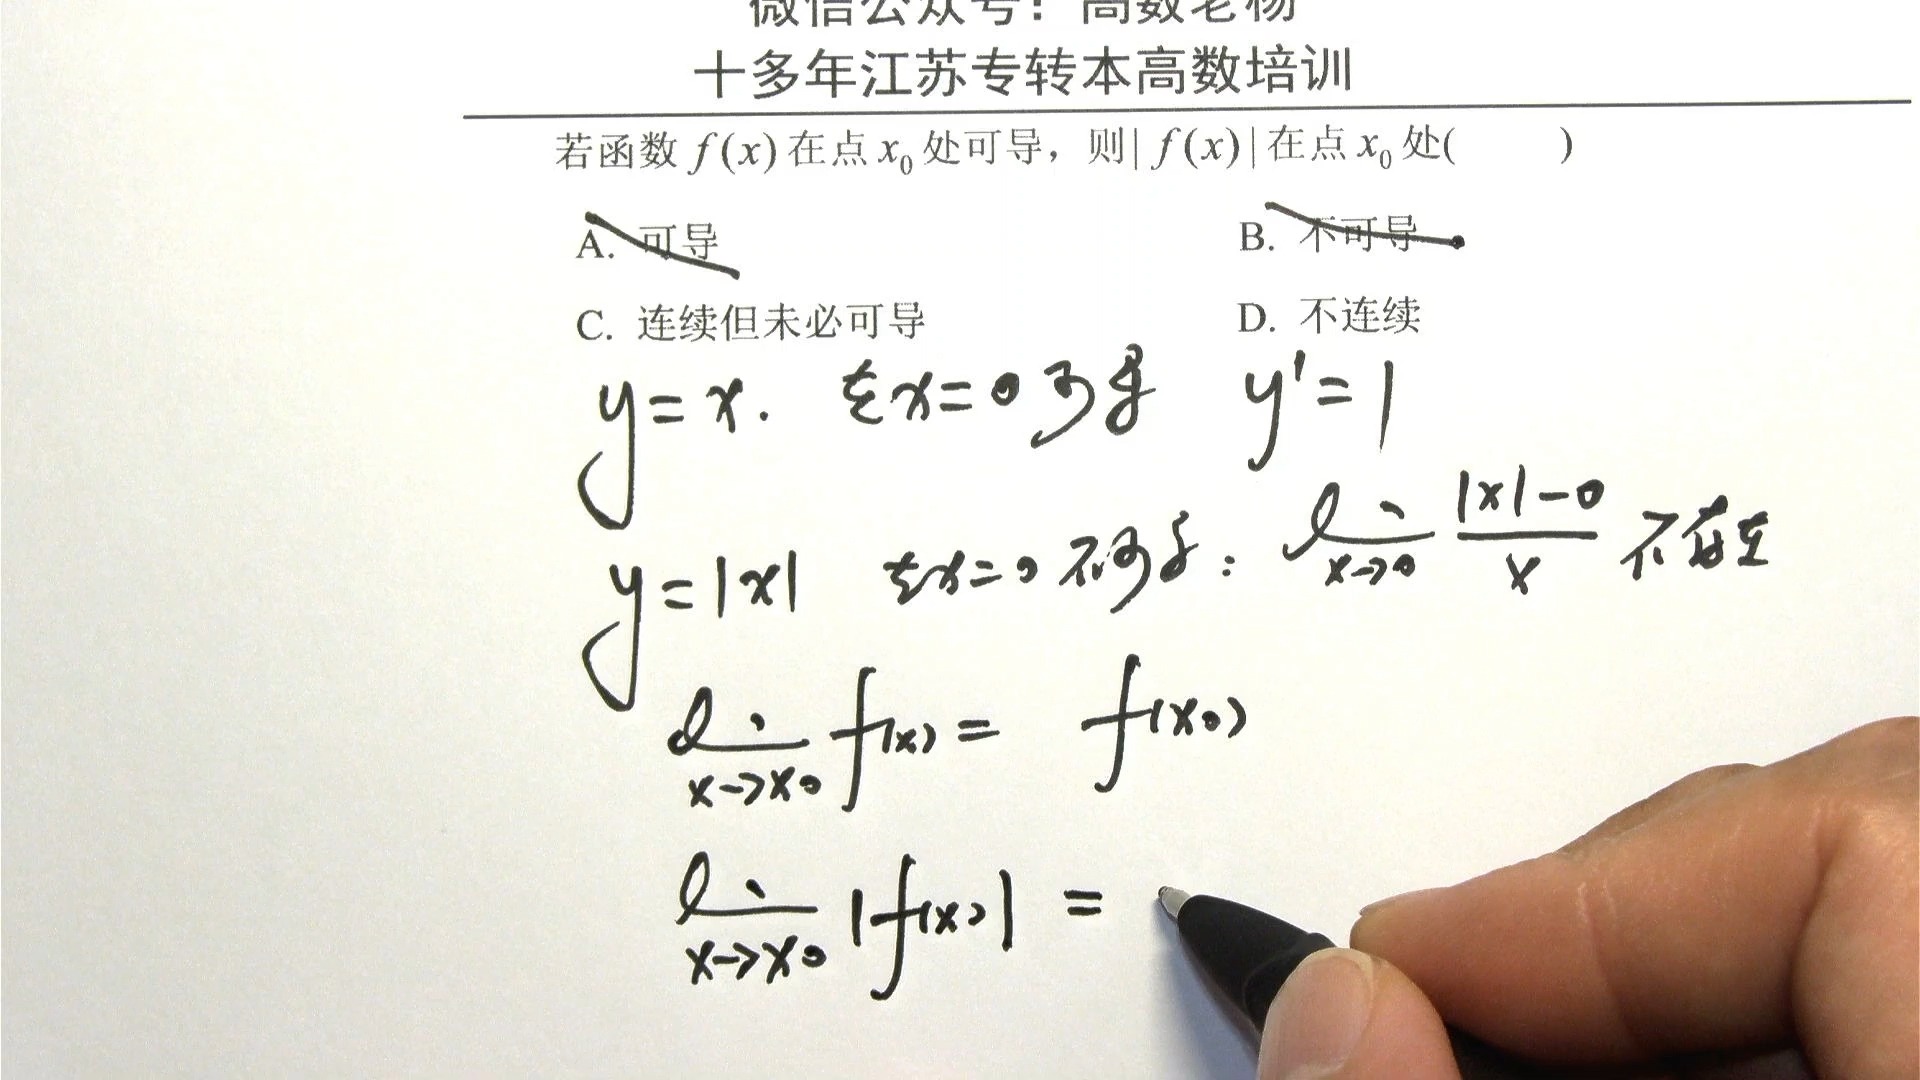 微信公众号：高数老杨
十多年江苏专转本高数培训
若函数 f(x) 在点 x₀ 处可导，则| f(x)| 在点 x₀ 处( )
A. 可导 B. 不可导
C. 连续但未必可导 D. 不连续
y = x. 在x=0可导 y' = 1
y = |x| 在x=0不可导: lim x→0 |x|-0 / x 不存在
lim x→x₀ f(x) = f(x₀)
lim x→x₀ |f(x)| =